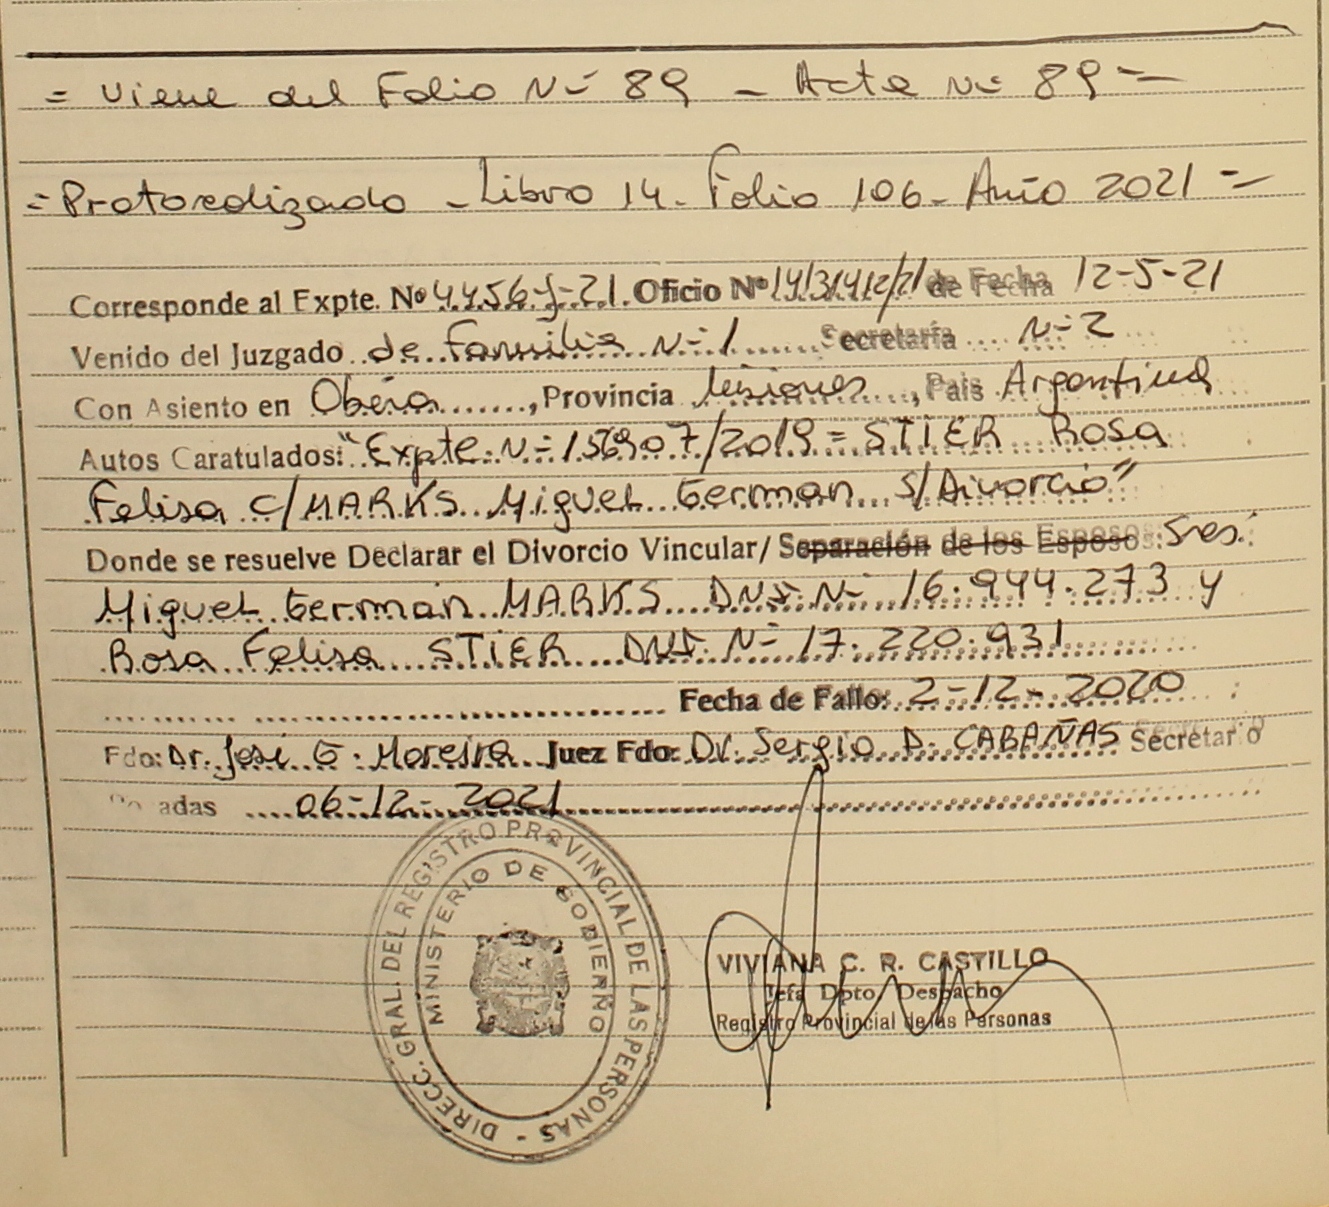 = Viene del Folio Nº 89 - Acta Nº 89 =
= Protocolizado - Libro 14 - Folio 106 - Año 2021 =
Corresponde al Expte. Nº 4456-J-21. Oficio Nº de Fecha 12-5-21
Venido del Juzgado de Familia Nº 1 Secretaría Nº 2
Con Asiento en Oberá, Provincia Misiones, País Argentina
Autos Caratulados: "Expte. Nº 156907/2019 = STIER Rosa
Felisa c/ MARKS Miguel German S/ Divorcio"
Donde se resuelve Declarar el Divorcio Vincular/ Separación de los Esposos: Sres.
Miguel German MARKS DNI Nº 16.944.273 y
Rosa Felisa STIER DNI Nº 17.220.931
Fecha de Fallo: 2-12-2020
Fdo: Dr. José G. Moreira Juez Fdo: Dr. Sergio D. CABAÑAS Secretario
Posadas 06-12-2021
DIRECC. GRAL. DEL REGISTRO PROVINCIAL DE LAS PERSONAS -
MINISTERIO DE GOBIERNO
VIVIANA C. R. CASTILLO
Jefa Dpto. Despacho
Registro Provincial de las Personas